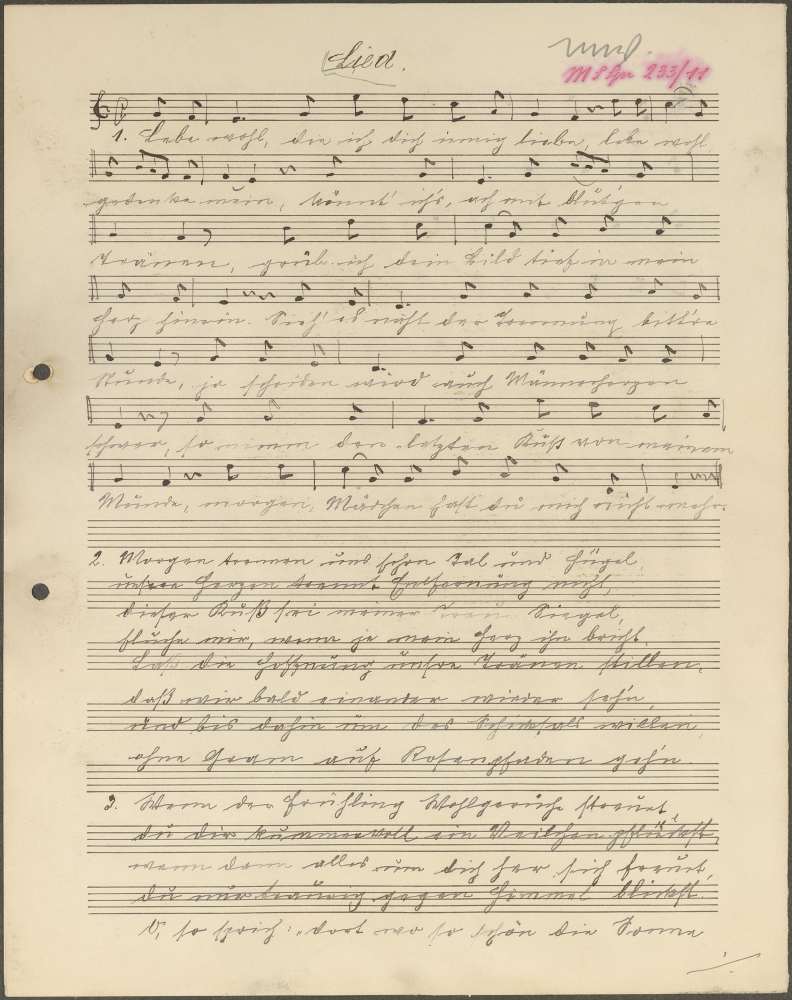 Lied.
M S Gr 233/11
1. Lebe wohl, die ich dich innig liebe, lebe wohl,
gedenke mein, könnt' ich's, ach mit blut'gen
Tränen, grüb ich dein Bild tief in mein
Herz hinein. Sieh' es naht der Trennung bitt're
Stunde, ja scheiden wird auch Männerherzen
schwer, so nimm den letzten Kuß von meinem
Munde, morgen, Mädchen hast du mich nicht mehr.
2. Morgen trennen uns schon Tal und Hügel,
unsere Herzen trennt Entfernung nicht,
dieser Kuß sei meiner Treu Siegel,
fluche mir, wenn je mein Herz ihn bricht.
Laß die Hoffnung unsre Tränen stillen,
daß wir bald einander wieder seh'n,
und bis dahin um des Schicksals willen,
ohne Gram auf Rosenpfaden geh'n.
3. Wenn der Frühling Wohlgerüche streuet,
du dir kummervoll ein Veilchen pflückst,
wenn dann alles um dich her sich freut,
du nur traurig gegen Himmel blickst.
O, so sprich: „dort wo so schön die Sonne